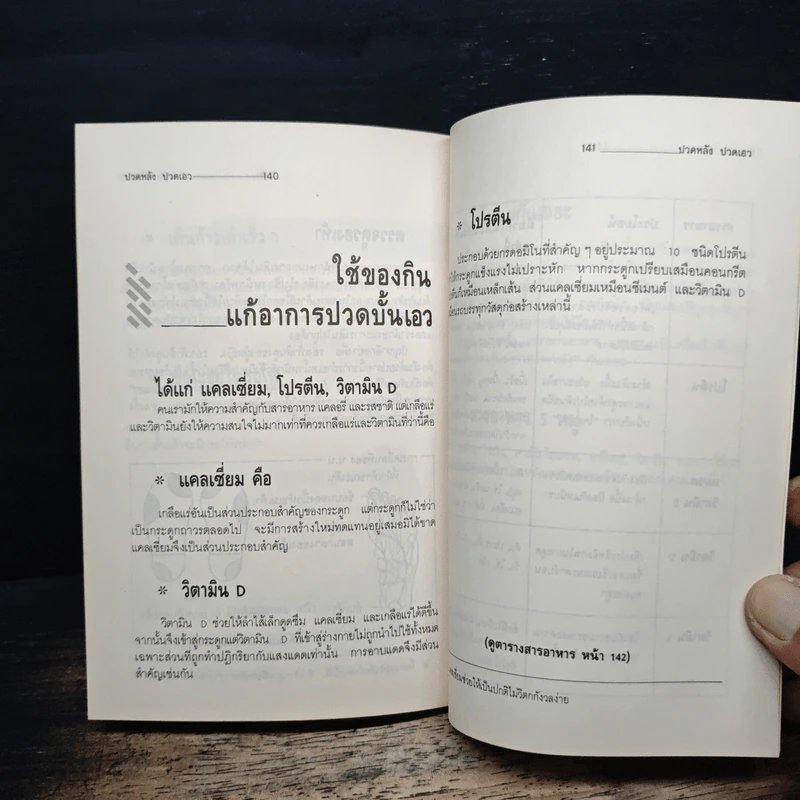 ปวดหลัง ปวดเอว 140
ใช้ของกิน
แก้อาการปวดบั้นเอว
ได้แก่ แคลเซี่ยม, โปรตีน, วิตามิน D
คนเรามักให้ความสำคัญกับสารอาหาร แคลอรี่ และรสชาติ แต่เกลือแร่
และวิตามินยังให้ความสนใจไม่มากเท่าที่ควรเกลือแร่และวิตามินที่ว่านี้คือ
* แคลเซี่ยม คือ
เกลือแร่อันเป็นส่วนประกอบสำคัญของกระดูก แต่กระดูกก็ไม่ใช่ว่า
เป็นกระดูกถาวรตลอดไป จะมีการสร้างใหม่ทดแทนอยู่เสมอมิได้ขาด
แคลเซี่ยมจึงเป็นส่วนประกอบสำคัญ
* วิตามิน D
วิตามิน D ช่วยให้ลำไส้เล็กดูดซึม แคลเซี่ยม และเกลือแร่ได้ดีขึ้น
จากนั้นจึงเข้าสู่กระดูกแต่วิตามิน D ที่เข้าสู่ร่างกายไม่ถูกนำไปใช้ทั้งหมด
เฉพาะส่วนที่ถูกทำปฏิกริยากับแสงแดดเท่านั้น การอาบแดดจึงมีส่วน
สำคัญเช่นกัน
141 ปวดหลัง ปวดเอว
* โปรตีน
ประกอบด้วยกรดอมิโนที่สำคัญ ๆ อยู่ประมาณ 10 ชนิดโปรตีน
ให้กระดูกแข็งแรงไม่เปราะหัก หากกระดูกเปรียบเสมือนคอนกรีต
ก็เหมือนเหล็กเส้น ส่วนแคลเซี่ยมเหมือนซีเมนต์ และวิตามิน D
รถบรรทุกวัสดุก่อสร้างเหล่านี้
(ดูตารางสารอาหาร หน้า 142)
ช่วยให้เป็นปกติไม่วิตกกังวลง่าย